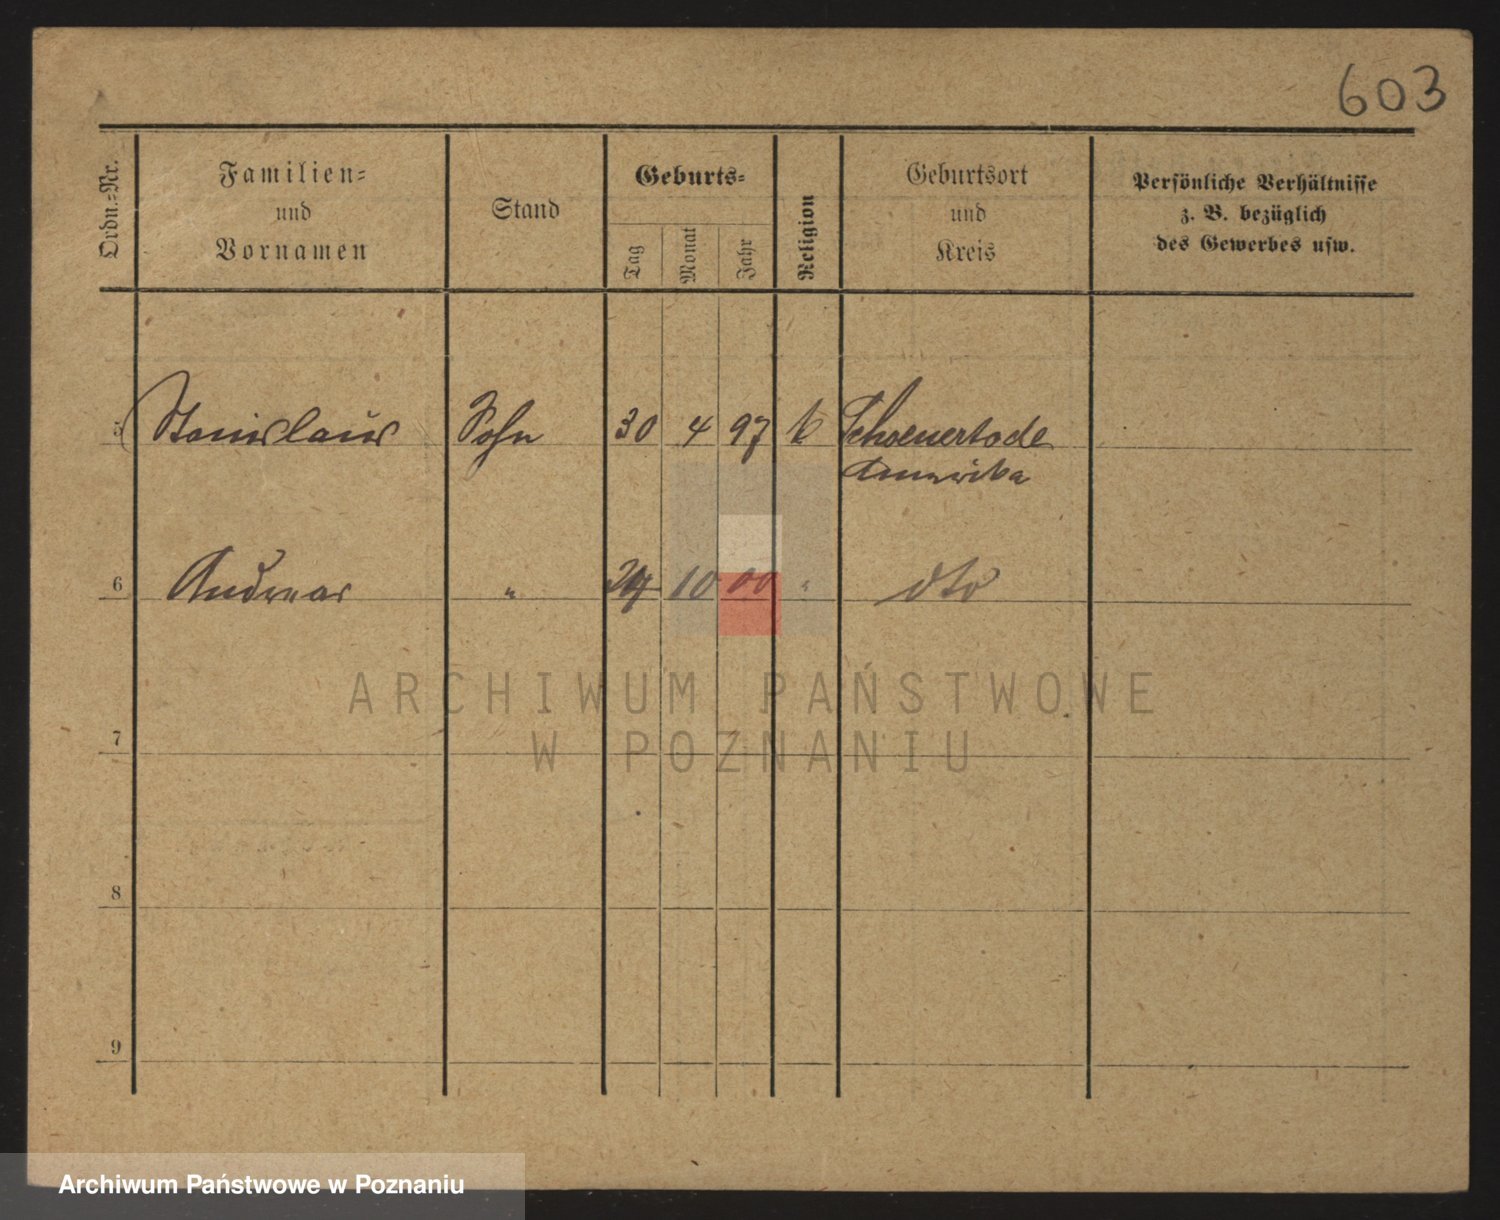 603
Ordn.-Nr.
Familien-
und
Vornamen
Stand
Geburts-
Tag
Monat
Jahr
Religion
Geburtsort
und
Kreis
Persönliche Verhältnisse
z. B. bezüglich
des Gewerbes usw.
5 Stanislaus Sohn 30 4 97 k
Amerika
6 Andreas " 10 00 " dto
7
8
9
ARCHIWUM PAŃSTWOWE
W POZNANIU
Archiwum Państwowe w Poznaniu